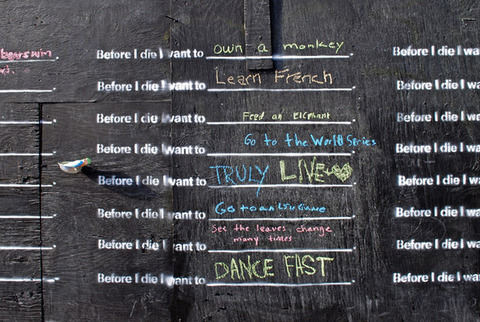 bears win
Before I die I want to own a monkey
Before I die I wa
Before I die I want to Learn French
Before I die I wa
Before I die I want to Feed an Elephant
Before I die I wa
Before I die I want to Go to the World Series
Before I die I wa
Before I die I want to TRULY LIVE
Before I die I wa
Before I die I want to Go to an LSU Game
Before I die I wa
Before I die I want to See the leaves change
many times
Before I die I wa
Before I die I want to DANCE FAST
Before I die I wa